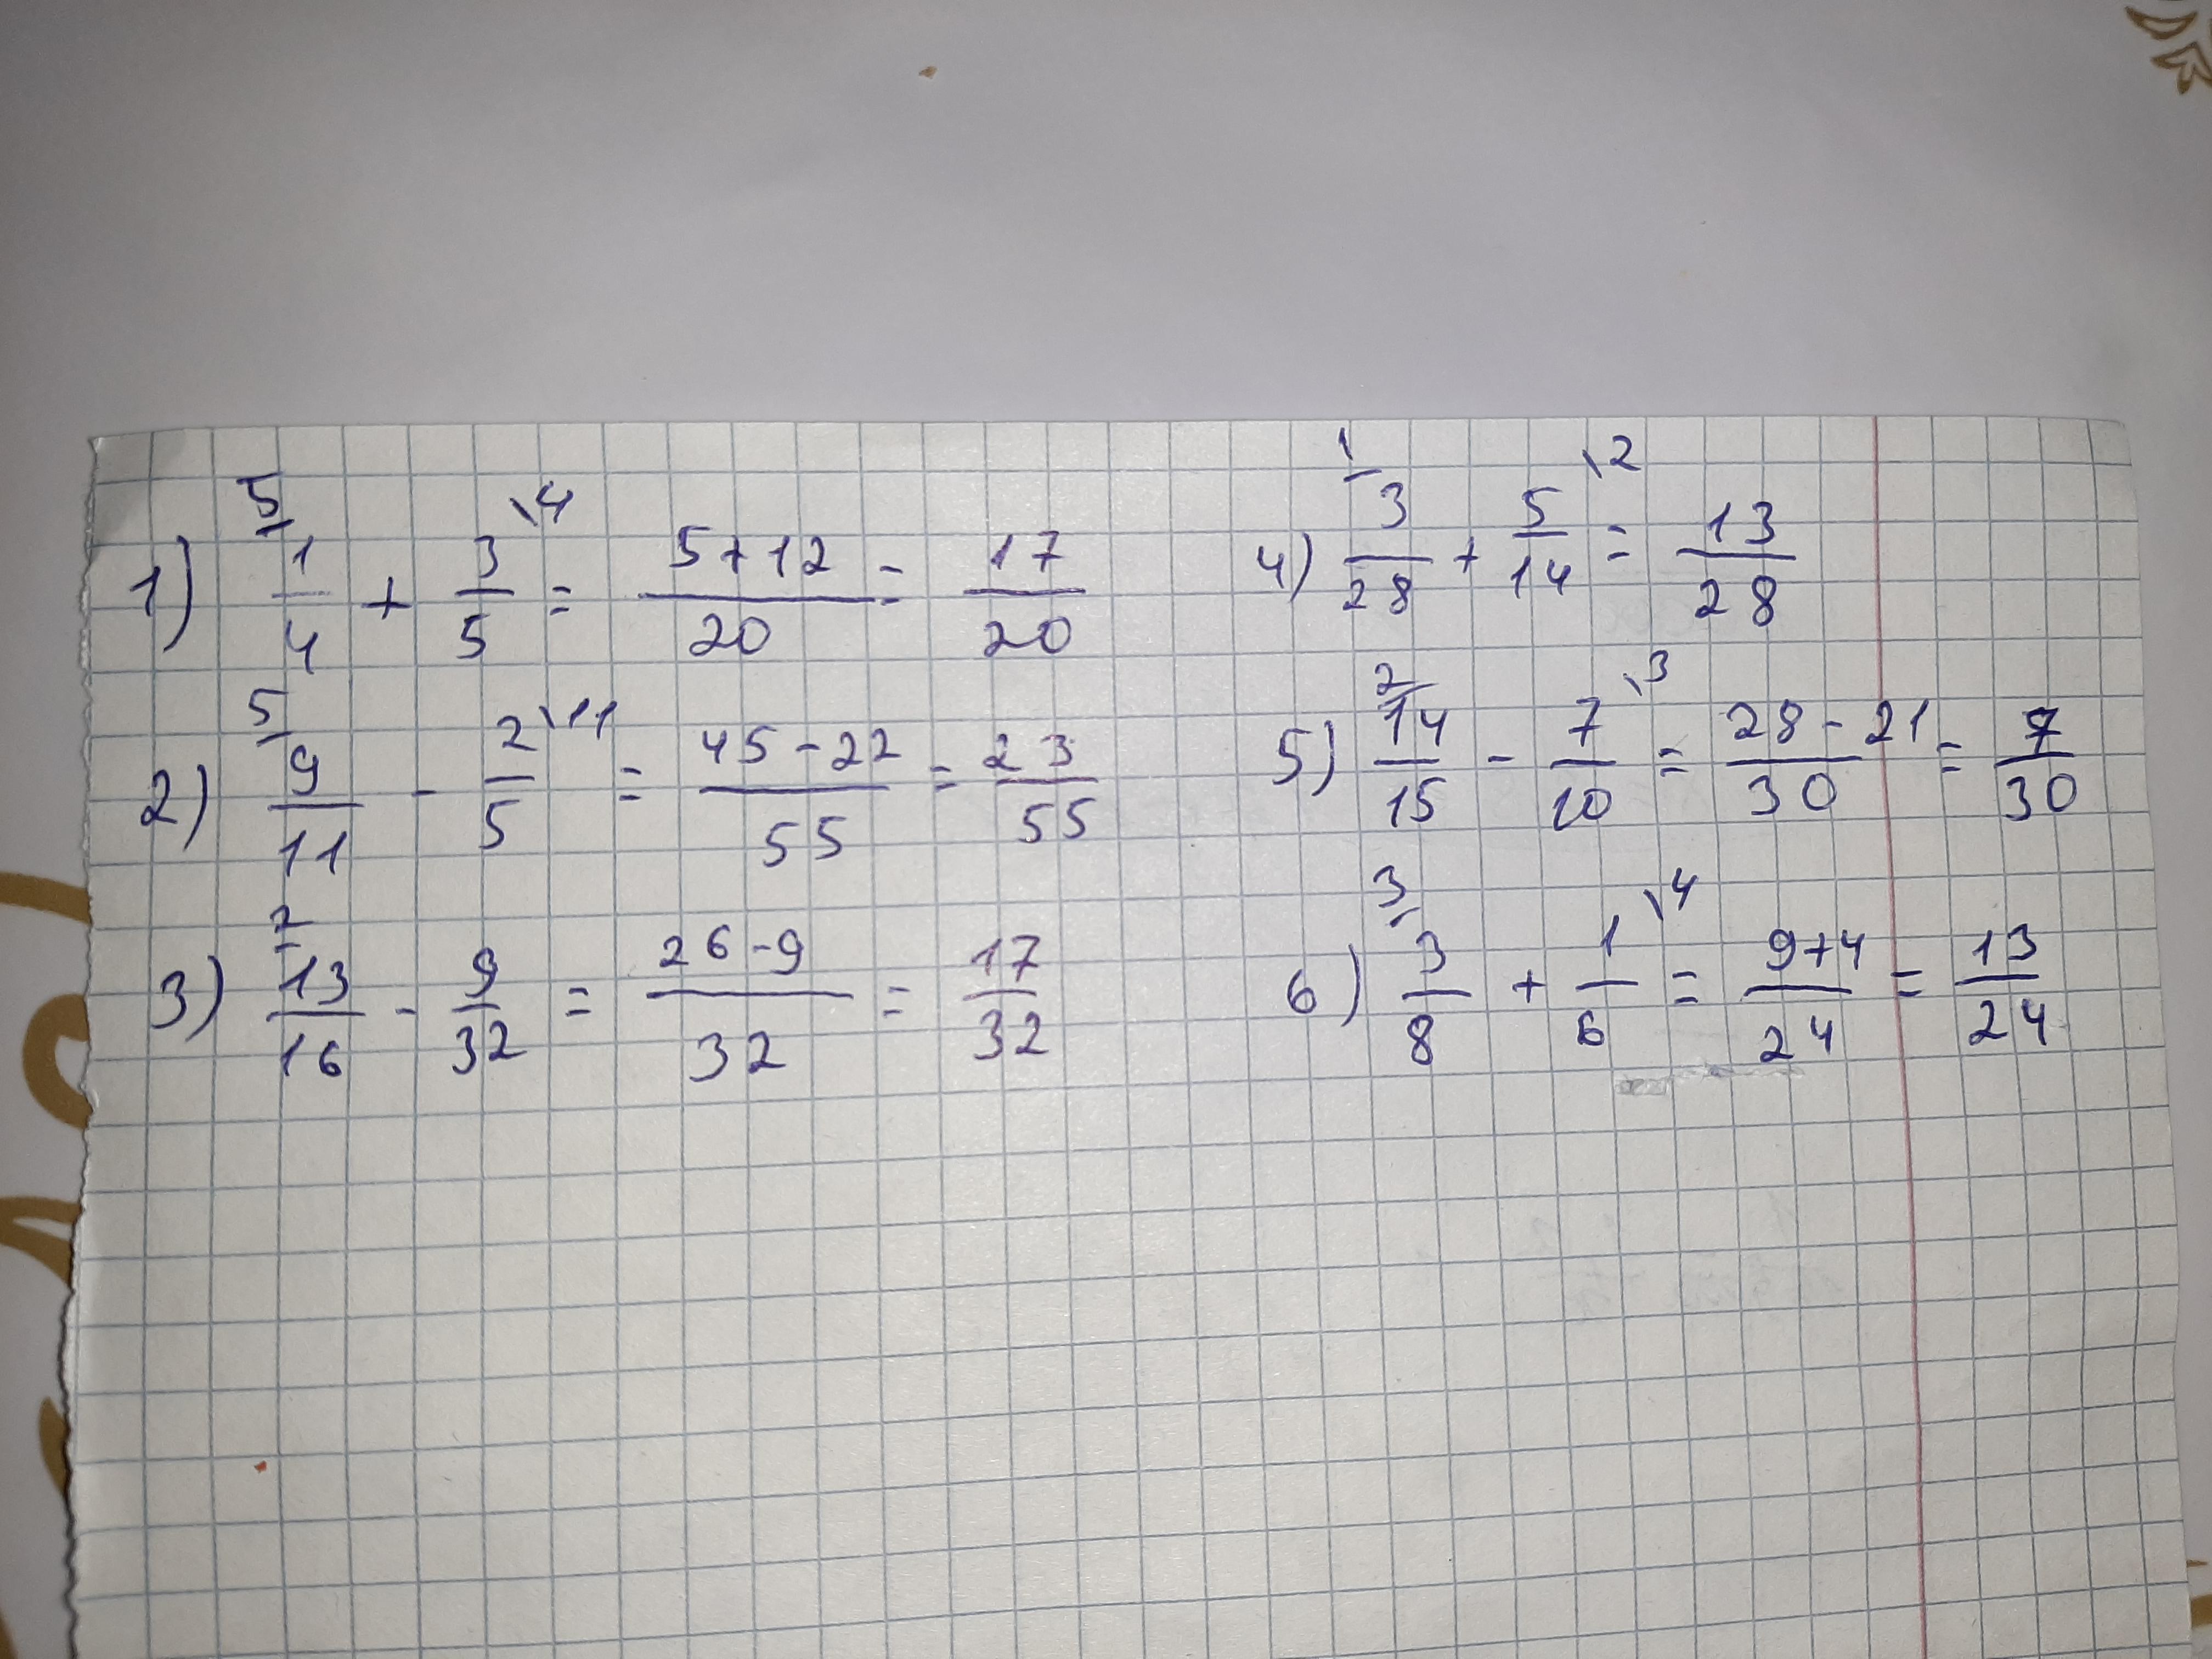 1) 5/ 1/4 + 3/5 \4 = 5+12/20 = 17/20
2) 5/ 9/11 - 2/5 \11 = 45-22/55 = 23/55
3) 2/ 13/16 - 9/32 = 26-9/32 = 17/32
4) 1/ 3/28 + 5/14 \2 = 13/28
5) 2/ 14/15 - 7/10 \3 = 28-21/30 = 7/30
6) 3/ 3/8 + 1/6 \4 = 9+4/24 = 13/24